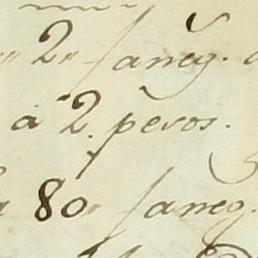 2 faneg.
à 2. pesos.
80 faneg.